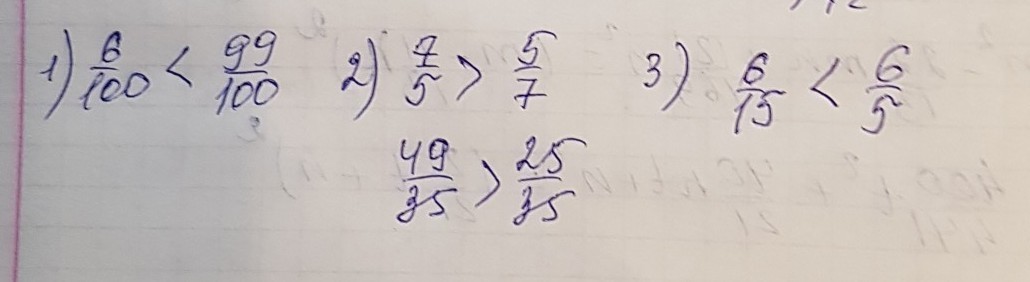 1) 6/100 < 99/100 2) 7/5 > 5/7 3) 6/15 < 6/5
49/35 > 25/35